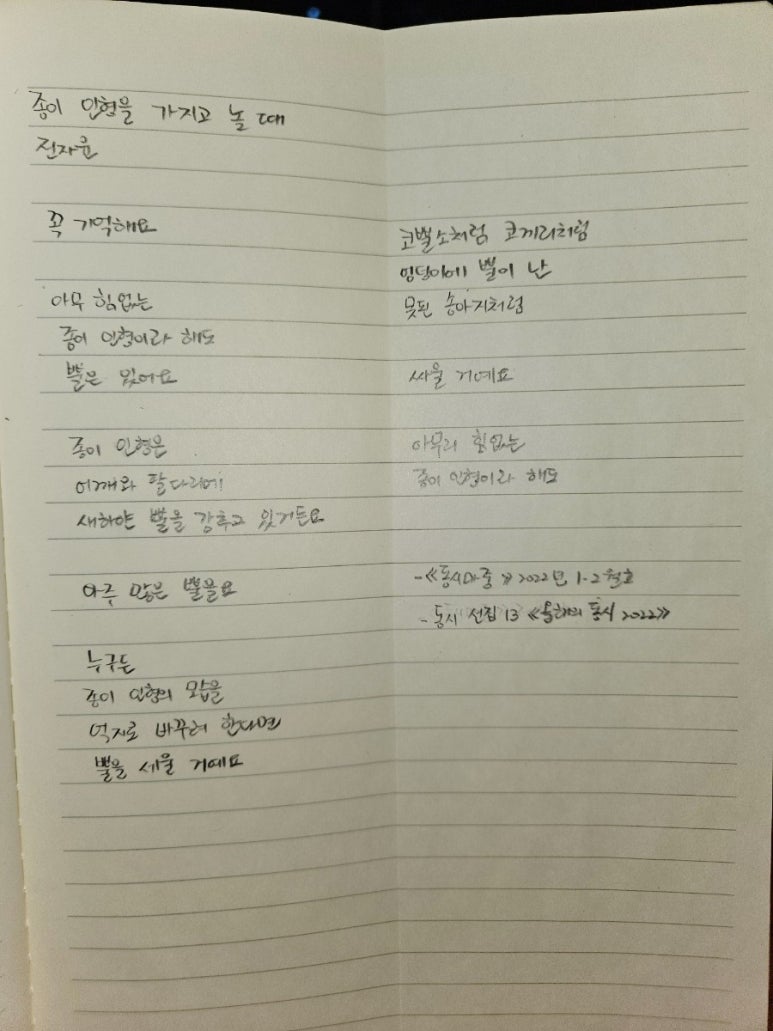 종이 인형을 가지고 놀 때
전자윤
꼭 기억해요
아무 힘없는
종이 인형이라 해도
뿔은 있어요
종이 인형은
어깨와 팔다리에
새하얀 뿔을 감추고 있거든요
아주 많은 뿔을요
누구든
종이 인형의 모습을
억지로 바꾸려 한다면
뿔을 세울 거예요
코뿔소처럼 코끼리처럼
엉덩이에 뿔이 난
못된 송아지처럼
싸울 거예요
아무리 힘없는
종이 인형이라 해도
-《동시마중》2022년 1·2월호
- 동시 선집 13 《올해의 동시 2022》